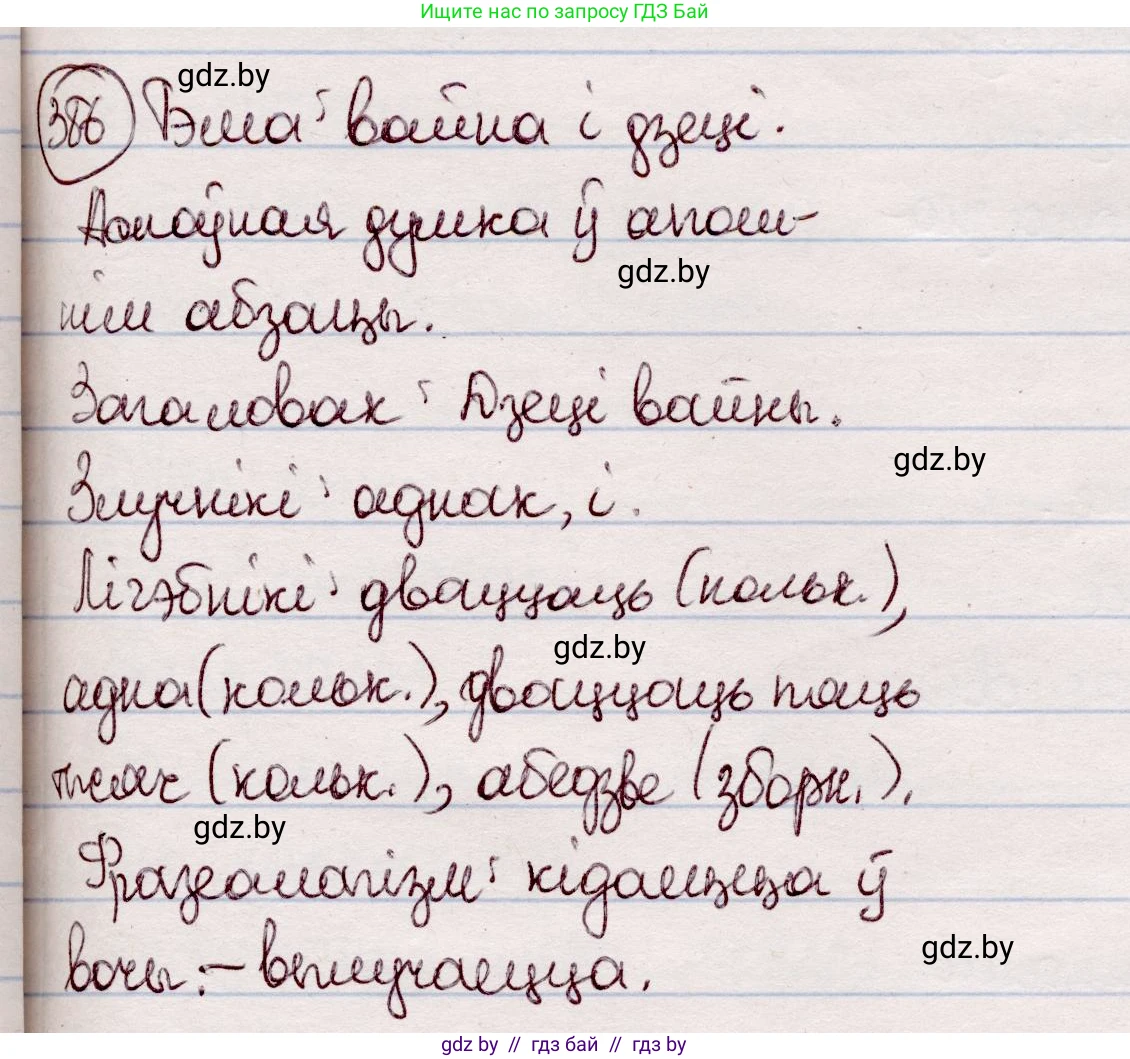 Ищите нас по запросу ГДЗ Бай
gdz.by
386 Тэма: вайна і дзеці.
Галоўная думка ў апош-
gdz.by
нім абзацы.
Загаловак: Дзеці вайны.
gdz.by
Злучнікі: аднак, і.
Лічэбнікі: дваццаць (кольк.),
gdz.by
адна (кольк.), дваццаць пяць
тысяч (кольк.), абедзве (зборн.).
gdz.by
Фразеалагізм: кідаецца ў
gdz.by
вочы: – вылучаецца.
gdz by // гдз бай // гdз by